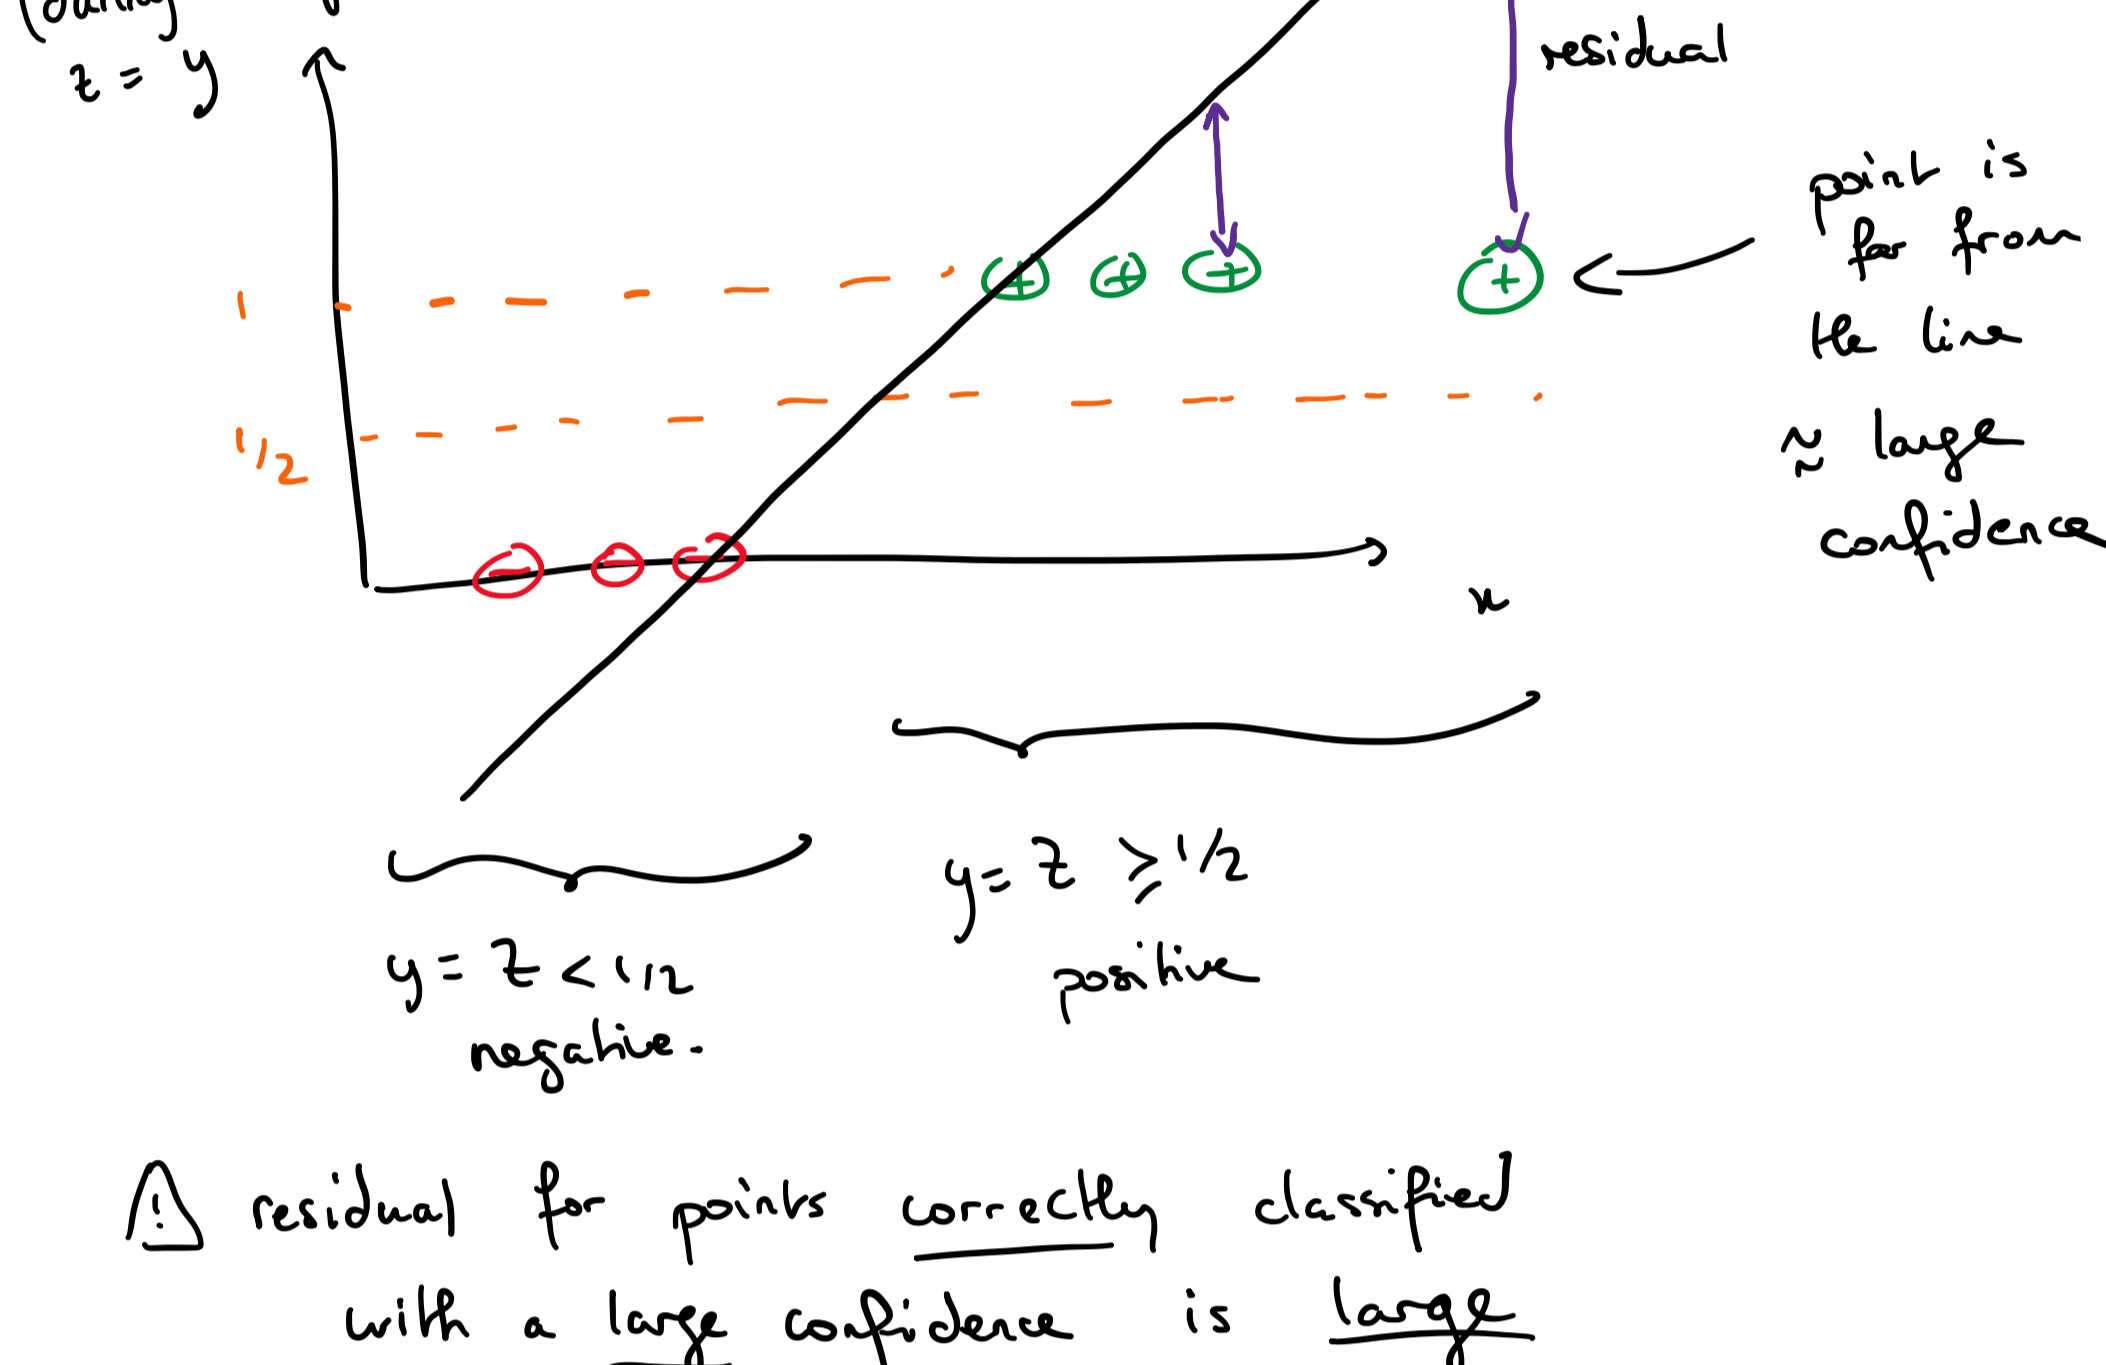 z = y
residual
point is
far from
the line
≈ large
confidence
1
1/2
+ + + +
- - -
x
y = z ≥ 1/2
positive
y = z < 1/2
negative.
! residual for points correctly classified
with a large confidence is large